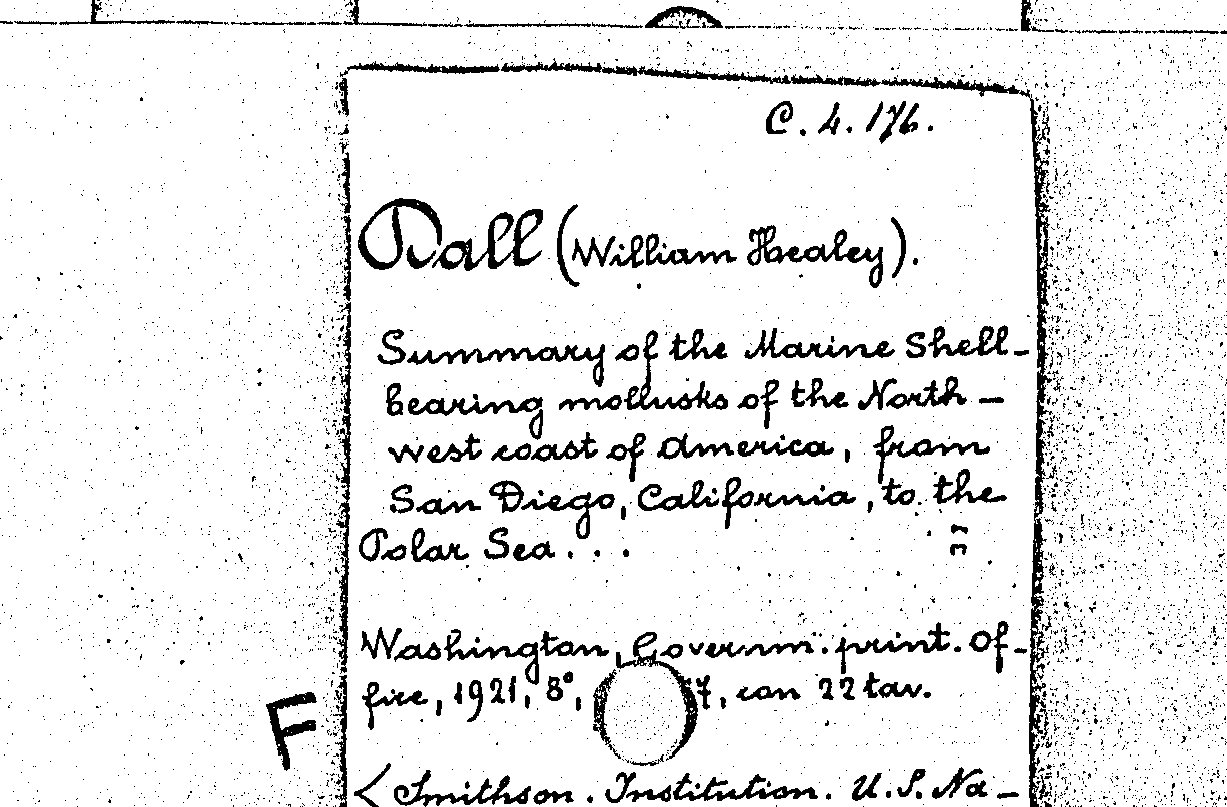 C. 4. 176.
Dall (William Healey).
Summary of the Marine Shell-
bearing mollusks of the North-
west coast of America, from
San Diego, California, to the
Polar Sea...
Washington, Governm. print. Of-
fice, 1921, 8°, 7, con 22 tav.
F
< Smithson. Institution. U.S. Na-